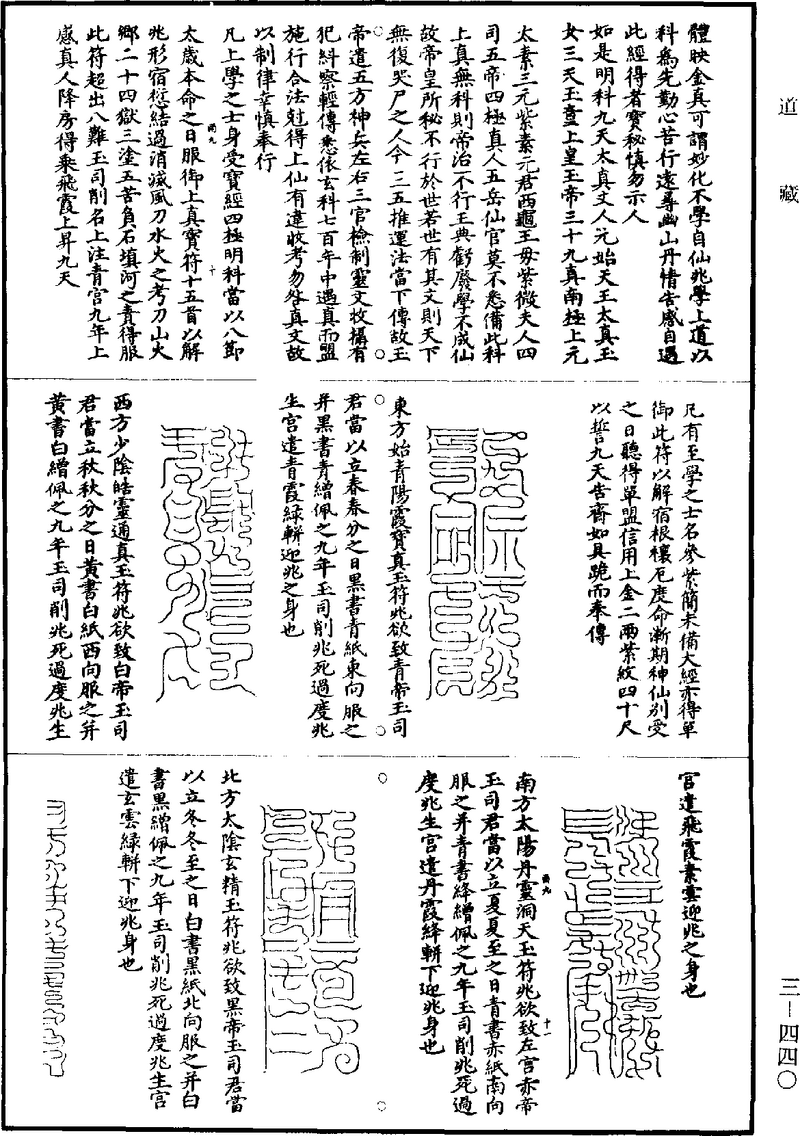 道藏
體映金真可謂妙化不學自仙兆學上道以
科為先勤心苦行遠尋幽山丹情告感自遇
此經得者寶秘慎勿示人
如是明科九天太真丈人元始天王太真玉
女三天玉童上皇玉帝三十九真南極上元
太素三元紫素元君西龜王母紫微夫人四
司五帝四極真人五岳仙官莫不悉備此科
上真無科則帝治不行王典虧廢學不成仙
故帝皇所秘不行於世若世有其文則天下
無復哭尸之人今三五推運法當下傳故玉
帝遣五方神兵左右三官檢制靈文收攝有
犯糾察輕傳悉依玄科七百年中遇真而盟
施行合法剋得上仙有違收考勿咎真文故
以制律幸慎奉行
凡上學之士身受寶經四極明科當以八節
太歲本命之日服御上真寶符十五首以解
兆形宿愆結過消滅風刀水火之考刀山火
鄉二十四獄三塗五苦負石填河之責得服
此符超出八難玉司削名上注青宮九年上
感真人降房得乘飛霞上昇九天
凡有至學之士名參紫簡未備大經亦得單
御此符以解宿根穰厄度命漸期神仙別受
之日聽得單盟信用上金二兩紫紋四十尺
以誓九天告齋如具跪而奉傳
東方始青陽霞寶真玉符兆欲致青帝玉司
君當以立春春分之日黑書青紙東向服之
并黑書青繒佩之九年玉司削兆死過度兆
生宮遣青霞綠軿迎兆之身也
西方少陰皓靈通真玉符兆欲致白帝玉司
君當立秋秋分之日黃書白紙西向服之并
黃書白繒佩之九年玉司削兆死過度兆生
宮遣飛霞素雲迎兆之身也
南方太陽丹靈洞天玉符兆欲致左官赤帝
玉司君當以立夏夏至之日青書赤紙南向
服之并青書絳繒佩之九年玉司削兆死過
度兆生宮遣丹霞絳軿下迎兆身也
北方太陰玄精玉符兆欲致黑帝玉司君當
以立冬冬至之日白書黑紙北向服之并白
書黑繒佩之九年玉司削兆死過度兆生宮
遣玄雲綠軿下迎兆身也
三－四四〇